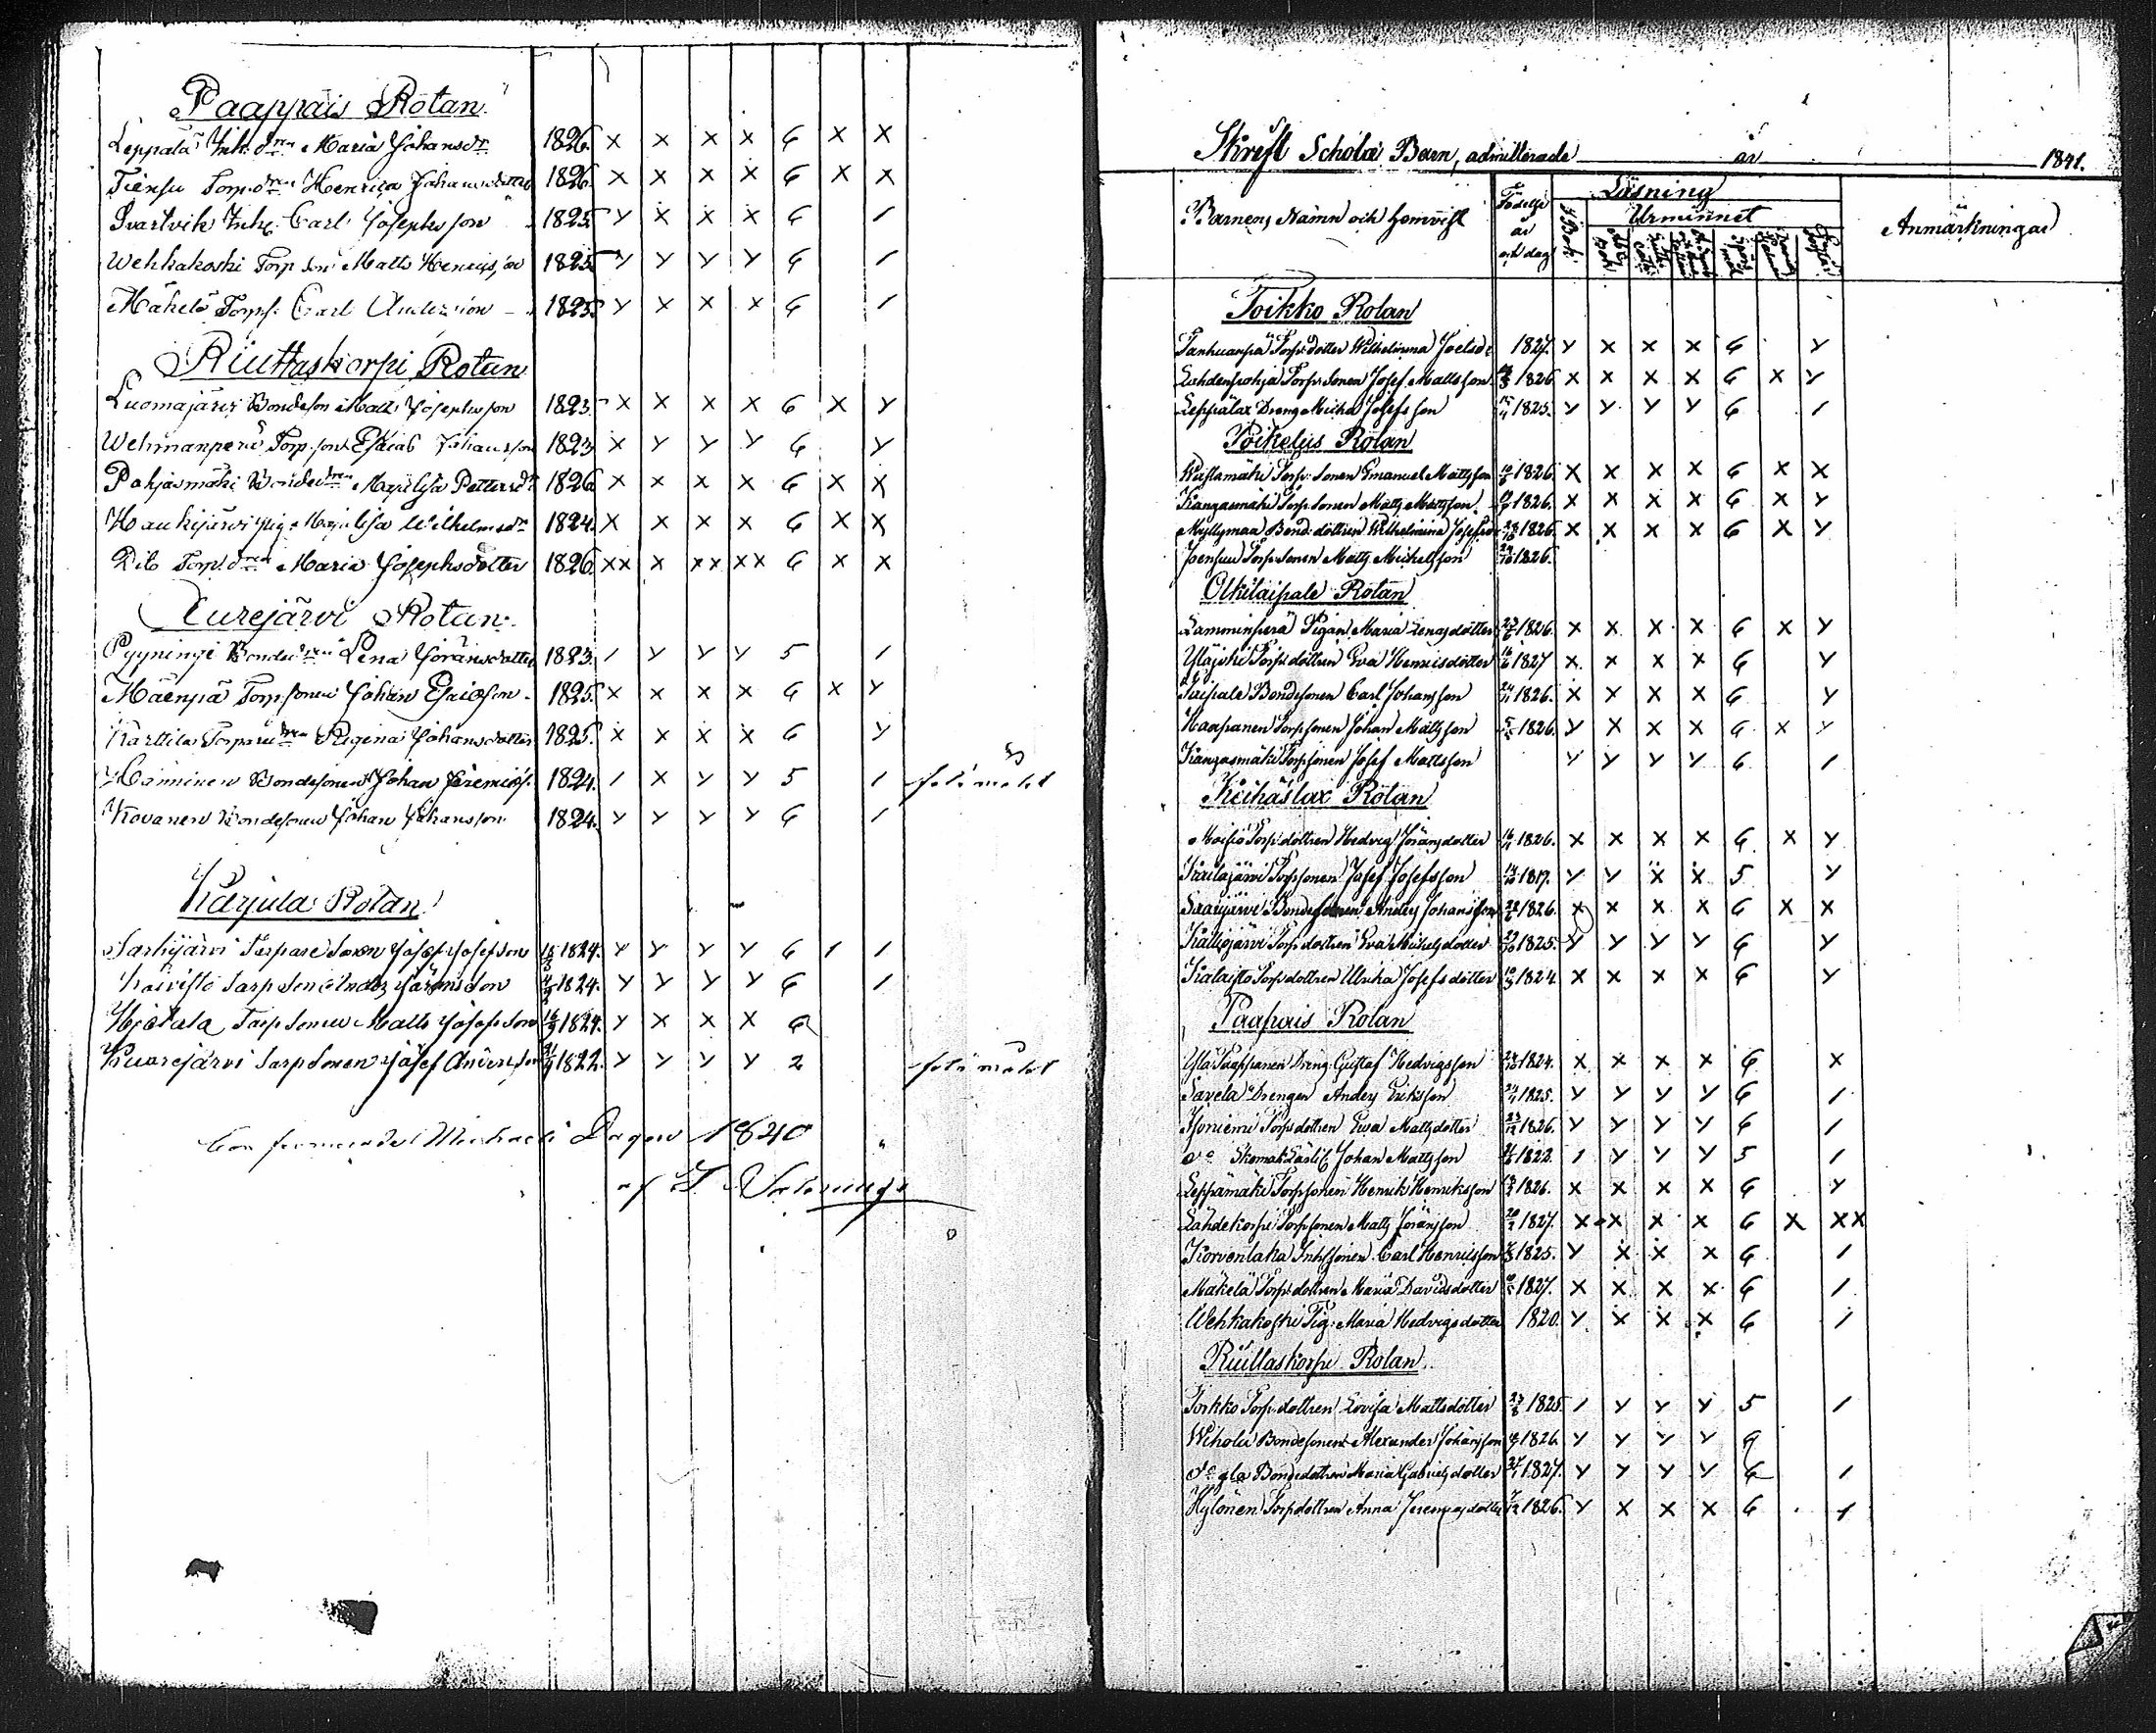 Paappais Rotan
Leppälä Inh. dren Maria Johansdr 1826. x x x x 6 x x
Tiensu Torp. dren Henrica Johansdotter 1826. x x x x 6 x x
Svartvik Inhs. Carl Josephsson 1825 y x x x 6 1
Wehkakoski Torp son Matts Henricsson 1825 y y y y 6 1
Mäkelä Torps. Carl Andersson 1825 y x x x 6 1
Riuttaskorpi Rotan
Luomajärvi Bondeson Matts Josephsson 1823. x x x x 6 x y
Wehmanperä Torp. son Esaias Johansson 1823 x y y y 6 y
Pohjasmäki Bonde dren Majalisa Pettersdr 1826 x x x x 6 x x
Haukijärvi Pig. Majalisa Wilhelmsdr 1824. x x x x 6 x x
Torp. dren Maria Josephsdotter 1826 xx x xx xx 6 x x
Kurejärvi Rotan
Pyyningi Bonde dren Lena Göransdotter 1823. 1 y y y 5 1
Mäenpä Torp. sonen Johan Esaiæson 1825. x x x x 6 x y
Karttila Torpare dren Regina Johansdotter 1825. x x x x 6 y
Hänninen Bondesonen Johan Jeremiæs. 1824. 1 x y y 5 1
Kovanen Bondesonen Johan Johansson 1824. y y y y 6 1
Karjula Rotan
Sarkijärvi Torpare Sonen Josef Josefson 1824. y y y y 6 1 1
Koivisto Torp Son Anders Göransson 1824. y y y y 6 1
Torp Sonen Matts Josefsson 1824. y x x x 6
Kuorejärvi Torp Sonen Josef Andersson 1822. y y y y 2
Confirmerade Michaeli Dagen 1840
af
Skrift Scholæ Barn, admitterade år 1841.
Barnens Namn och hemvist
Födelse år och dag
Läsning
Urminnet
Anmärkningar
Toikko Rotan
Tanhuanpä Torp. dotter Wilhelmina Joelsdr 1827. y x x x 6 y
Lahdenpohja Torp. Sonen Josef Mattsson 1826 x x x x 6 x y
Leppälax Dreng Michel Josefsson 1825. y y y y 6 1
Poikelus Rotan
Torp. Sonen Emanuel Mattsson 1826. x x x x 6 x x
Kangasmäki Torp. Sonen Matts Mattsson 1826. x x x x 6 x y
Myllymaa Bond. dottren Wilhelmina Josefsdr 1826. x x x x 6 x y
Joensuu Torp. Sonen Matts Michelsson 1826.
Olkitaipale Rotan
Lamminperä Pigan Maria Lenasdotter 1826. x x x x 6 x y
Yläjoki Torp. dottren Eva Henricsdotter 1827 x x x x 6 y
Taipale Bondesonen Carl Johansson 1826. x x x x 6 y
Haapanen Torpsonen Johan Mattsson 1826. y x x x 6 x y
Kangasmäki Torpsonen Josef Mattsson y y y y 6 1
Keihäslax Rotan
Moisio Torp. dottren Hedvig Göransdotter 1826. x x x x 6 x y
Torpsonen Josef Josefsson 1817. y y x x 5 y
Saarijärvi Bondesonen Anders Johansson 1826. x x x x 6 x x
Kallojärvi Torp dottren Eva Michelsdotter 1825. y y y y 6 y
Torp dottren Ulrika Josefsdotter 1824 x x x x 6 y
Paapais Rotan
Ylä Paappanen Dreng. Gustaf Hedvigsson 1824. x x x x 6 x
Savela Drengen Anders Eriksson 1825. y y y y 6 1
Isoniemi Torp dottren Ewa Mattsdotter 1826. y y y y 6 1
do Skomak. Lärl. Johan Mattsson 1822. 1 y y y 5 1
Leppämäki Torpsonen Henrik Henriksson 1826. x x x x 6 y
Lähdekorpi Torpsonen Matts Göransson 1827. x x x x 6 x xx
Korvenlaka Inhssonen Carl Henriksson 1825. y x x x 6 1
Mäkelä Torp. dottren Maria Davidsdotter 1827. x x x x 6 1
Wehkakoski Pig. Maria Hedvigsdotter 1820. y x x x 6 1
Riuttaskorpi Rotan
Torkko Torp. dottren Lovisa Mattsdotter 1825. 1 y y y 5 1
Wihola Bondesonen Alexander Johansson 1826 y y y y 6
Bondedottren Maria Gabrielsdotter 1827. y y y y 6 1
Hylönen Torpdottren Anna Jeremiædotter 1826. y x x x 6 1